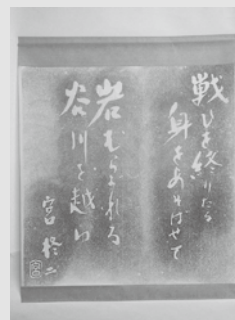 戦ひを終りたる
身をあそばせて
岩むらがれる
谷川を越ゆ
宮柊二